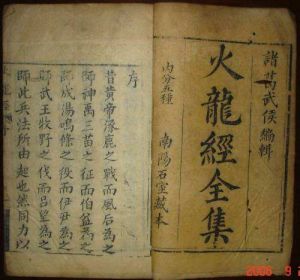 諸葛武侯編輯
火龍經全集
内分五種
南陽石室藏本
序
昔黄帝涿鹿之戰而風后為之
師神禹三苗之征而伯益為之
師成湯鳴條之役而伊尹為之
師武王牧野之伐而吕望為之
師此兵法所由起也然同力以
2006 9